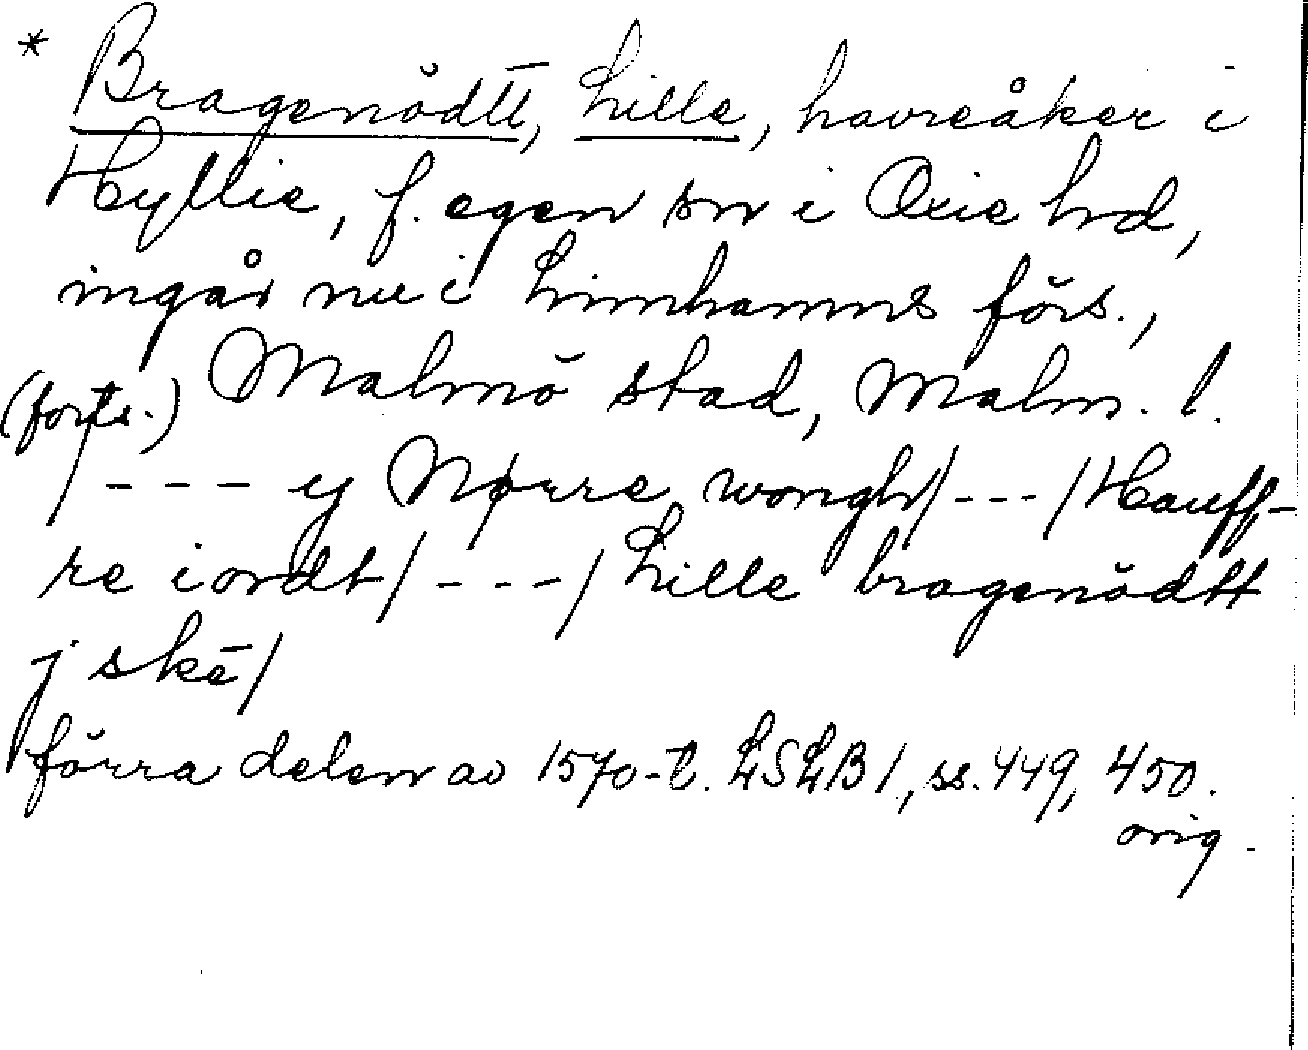 * Bragenödtt, Lille, havreåker i
Hyllie, f. egen sn i Oxie hd,
ingår nu i Limhamns förs.,
(forts.) Malmö stad, Malm. l.
/--- ij Nørre wongh/---/Hauff-
re iordt/---/Lille bragenödtt
j skē/
förra delen av 1570-t. LSLB 1, ss. 449, 450.
orig.